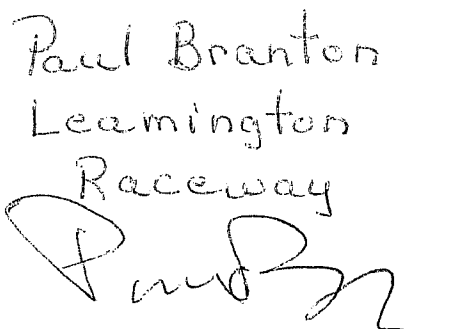 Paul Branton
Leamington
Raceway